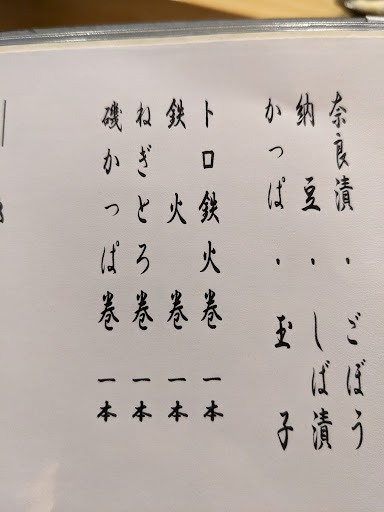 奈良漬・ごぼう
納豆・しば漬
かっぱ・玉子
トロ鉄火巻一本
鉄火巻一本
ねぎとろ巻一本
磯かっぱ巻一本